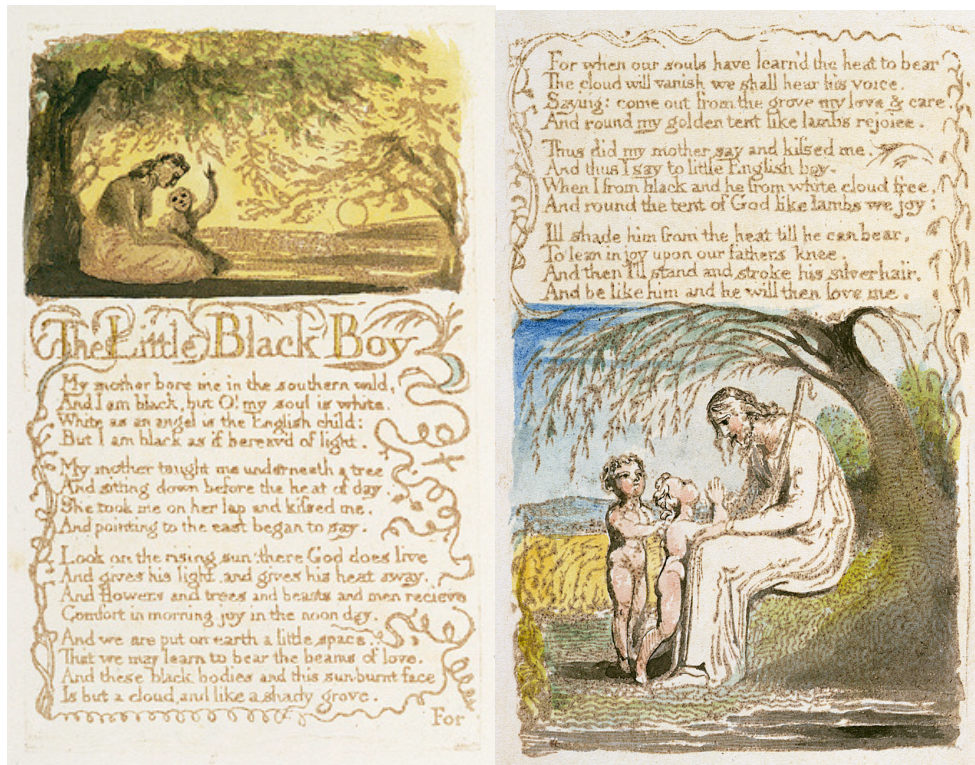 The Little Black Boy
My mother bore me in the southern wild,
And I am black, but O! my soul is white.
White as an angel is the English child:
But I am black as if bereav'd of light.
My mother taught me underneath a tree
And sitting down before the heat of day.
She took me on her lap and kifsed me.
And pointing to the east began to say.
Look on the rising sun: there God does live
And gives his light, and gives his heat away.
And flowers and trees and beasts and men recieve
Comfort in morning joy in the noon day.
And we are put on earth a little space.
That we may learn to bear the beams of love.
And these black bodies and this sun-burnt face
Is but a cloud, and like a shady grove.
For
For when our souls have learn'd the heat to bear
The cloud will vanish we shall hear his voice.
Saying: come out from the grove my love & care.
And round my golden tent like lambs rejoice.
Thus did my mother say and kifsed me.
And thus I say to little English boy.
When I from black and he from white cloud free,
And round the tent of God like lambs we joy:
Ill shade him from the heat till he can bear,
To lean in joy upon our fathers knee.
And then I'll stand and stroke his silver hair,
And be like him and he will then love me.